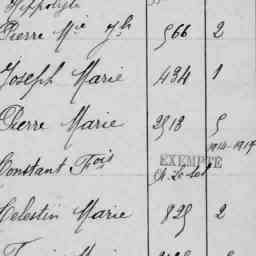 Hippolyte
Pierre Mie Jh 566 2
Joseph Marie 434 1
Pierre Marie 2513 5
1914-1919
Constant Fois EXEMPTÉ
Celestin Marie 825 2